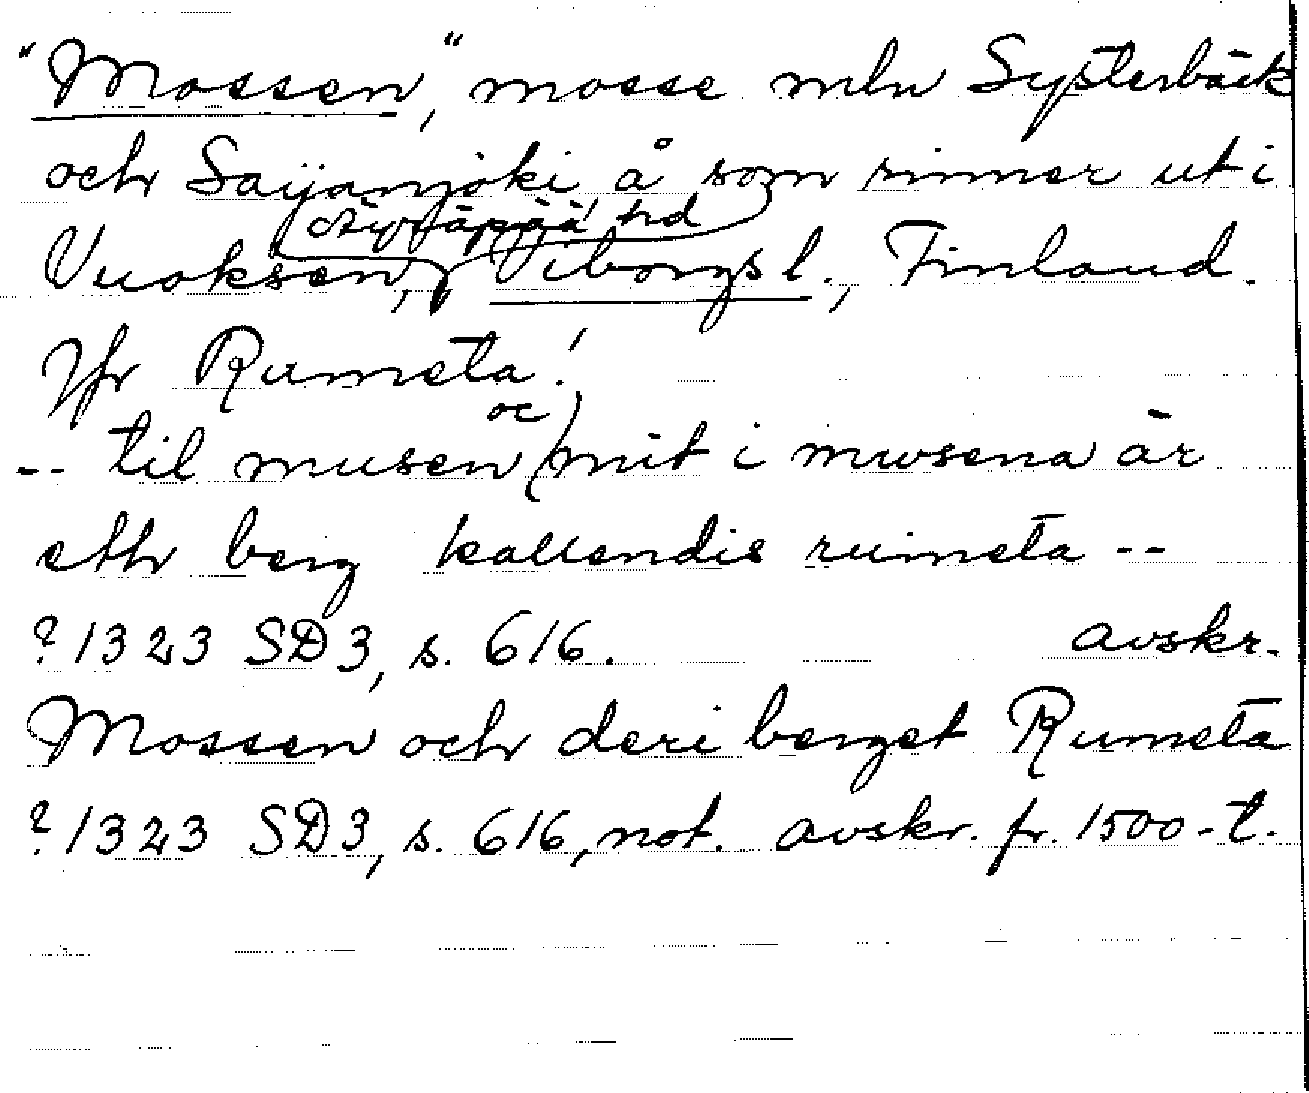 "Mossen", mosse mln Systerbäck
och Saijanjoki å som rinner ut i
Äyräpää hd
Vuoksen, Viborgs l., Finland.
Jfr Rumeta!
-- til musen oc mit i mwsena är
etth berg kallendis rumeta --
? 1323 SD3, s. 616. avskr.
Mossen och deri berget Rumeta
? 1323 SD3, s. 616, not. avskr. fr. 1500-t.